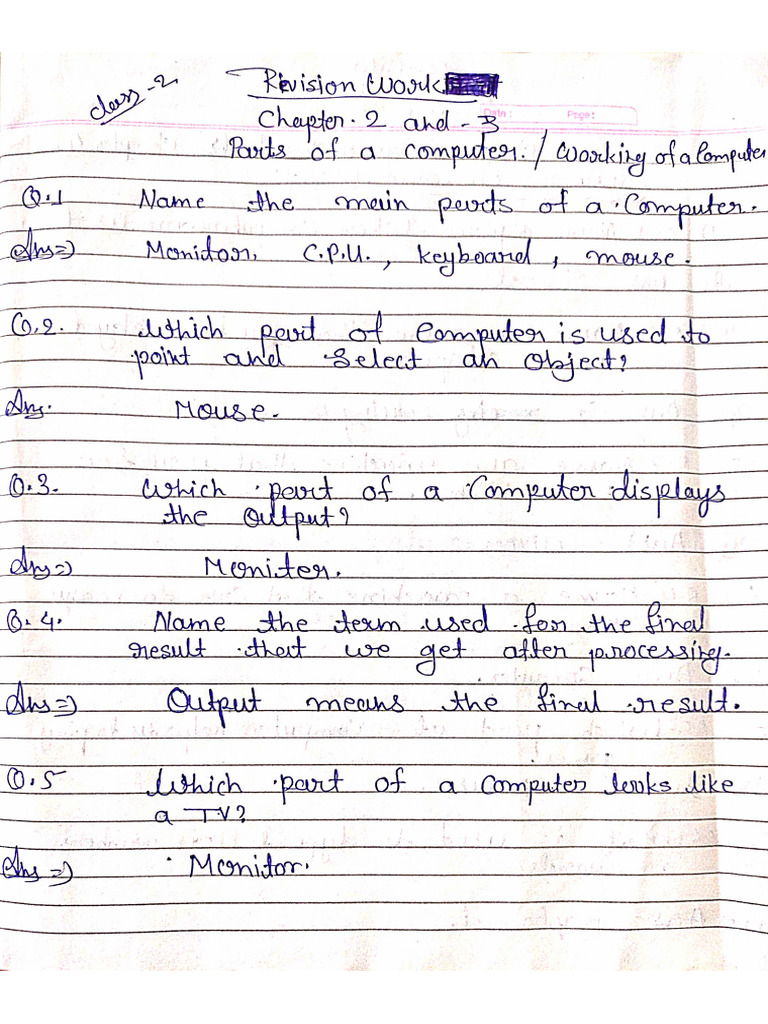 class-2
Revision Work
Date: Page:
Chapter-2 and-3
Parts of a computer. / Working of a Computer
Q.1 Name the main parts of a Computer.
Ans⇒ Monitor, C.P.U., keyboard, mouse.
Q.2. Which part of Computer is used to
point and select an object?
Ans. Mouse.
Q.3. Which part of a Computer displays
the output?
Ans⇒ Moniter.
Q.4. Name the term used for the final
result that we get after processing.
Ans⇒ Output means the final result.
Q.5 Which part of a Computer looks like
a TV?
Ans⇒ Monitor.